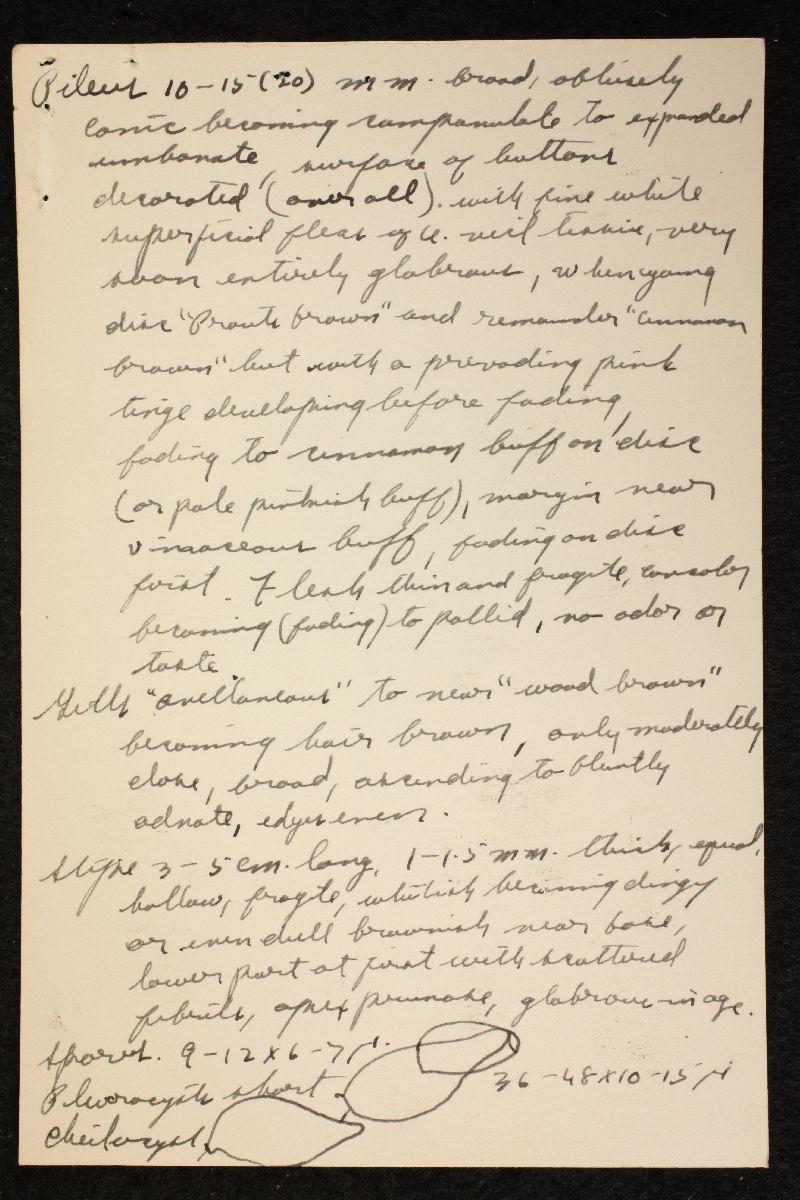 Pileus 10-15(20) mm. broad, obtusely
conic becoming campanulate to expanded
umbonate, surface of buttons
decorated (over all). with fine white
superficial flecs of veil tissue, very
soon entirely glabrous, when young
disc "Prouts brown" and remainder "cinnamon
brown" but with a prevading pink
tinge developing before fading,
fading to cinnamon buff on disc
(or pale pinkish buff), margin near
vinaceous buff, fading on disc
first. Flesh thin and fragile, concolor
becoming (fading) to pallid, no odor or
taste.
Gills "avellaneous" to near "wood brown"
becoming hair brown, only moderately
close, broad, ascending to bluntly
adnate, edges even.
Stipe 3-5 cm. long, 1-1.5 mm. thick, equal,
hollow, fragile, whitish becoming dingy
or even dull brownish near base,
lower part at first with scattered
fibrils, apex pruinose, glabrous in age.
Spores. 9-12 x 6-7 μ.
Pleurocysts short. 36-48 x 10-15 μ
Cheilocyst.